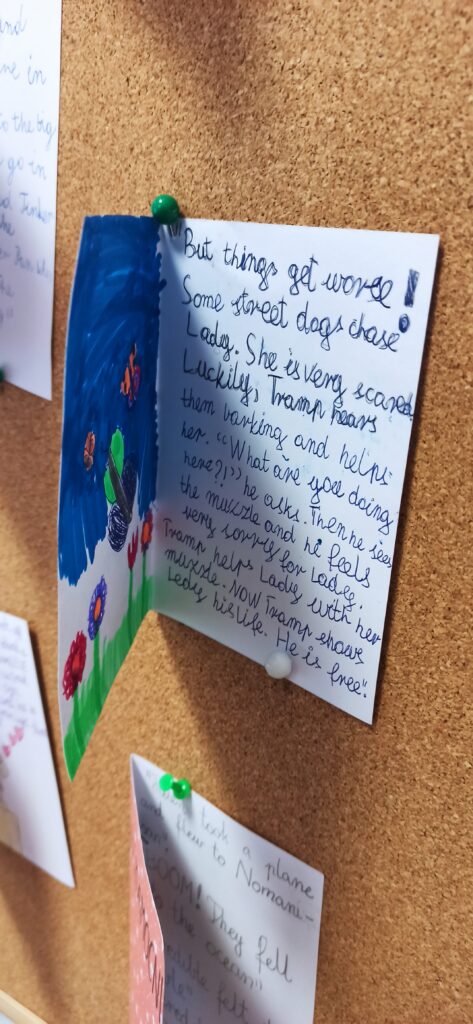 and
ne in
to the big
go in
But things get worse!
Some street dogs chase
Lady. She is very scared.
Luckily, Tramp hears
them barking and helps
her. "What are you doing
here?!" he asks. Then he sees
the muzzle and he feels
very sorry for Ladey.
Tramp helps Lady with her
muzzle. Now Tramp shows
Ledy his life. He is free".
took a plane
and flew to Nomani-
BOOM! They fell
to the ocean"
felt